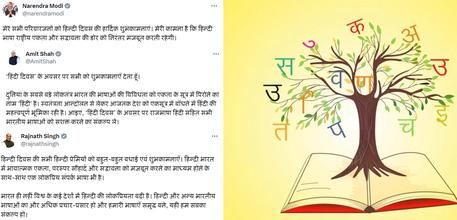 Narendra Modi
@narendramodi
मेरे सभी परिवारजनों को हिन्दी दिवस की हार्दिक शुभकामनाएं। मेरी कामना है कि हिन्दी
भाषा राष्ट्रीय एकता और सद्भावना की डोर को निरंतर मजबूत करती रहेगी।
Amit Shah
@AmitShah
'हिंदी दिवस' के अवसर पर सभी को शुभकामनाएं देता हूँ।
दुनिया के सबसे बड़े लोकतंत्र भारत की भाषाओं की विविधता को एकता के सूत्र में पिरोने का
नाम 'हिंदी' है। स्वतंत्रता आन्दोलन से लेकर आजतक देश को एकसूत्र में बांधने में हिंदी की
महत्वपूर्ण भूमिका रही है। आइए, 'हिंदी दिवस' के अवसर पर राजभाषा हिंदी सहित सभी
भारतीय भाषाओं को सशक्त करने का संकल्प लें।
Rajnath Singh
@rajnathsingh
हिन्दी दिवस की सभी हिन्दी प्रेमियों को बहुत-बहुत बधाई एवं शुभकामनाएं! हिन्दी भारत
में भावात्मक एकता, परस्पर सौहार्द और सद्भावना को मजबूत करने का माध्यम होने के
साथ-साथ एक लोकप्रिय संपर्क भाषा भी है।
भारत ही नहीं विश्व के कई देशों में हिन्दी की लोकप्रियता बढ़ी है। हिन्दी और अन्य भारतीय
भाषाओं का और अधिक प्रचार-प्रसार हो और हमारी भाषाएँ समृद्ध बने, यही हम सबका
संकल्प हो।
क अ
स व ण उ
उ इ
त प च